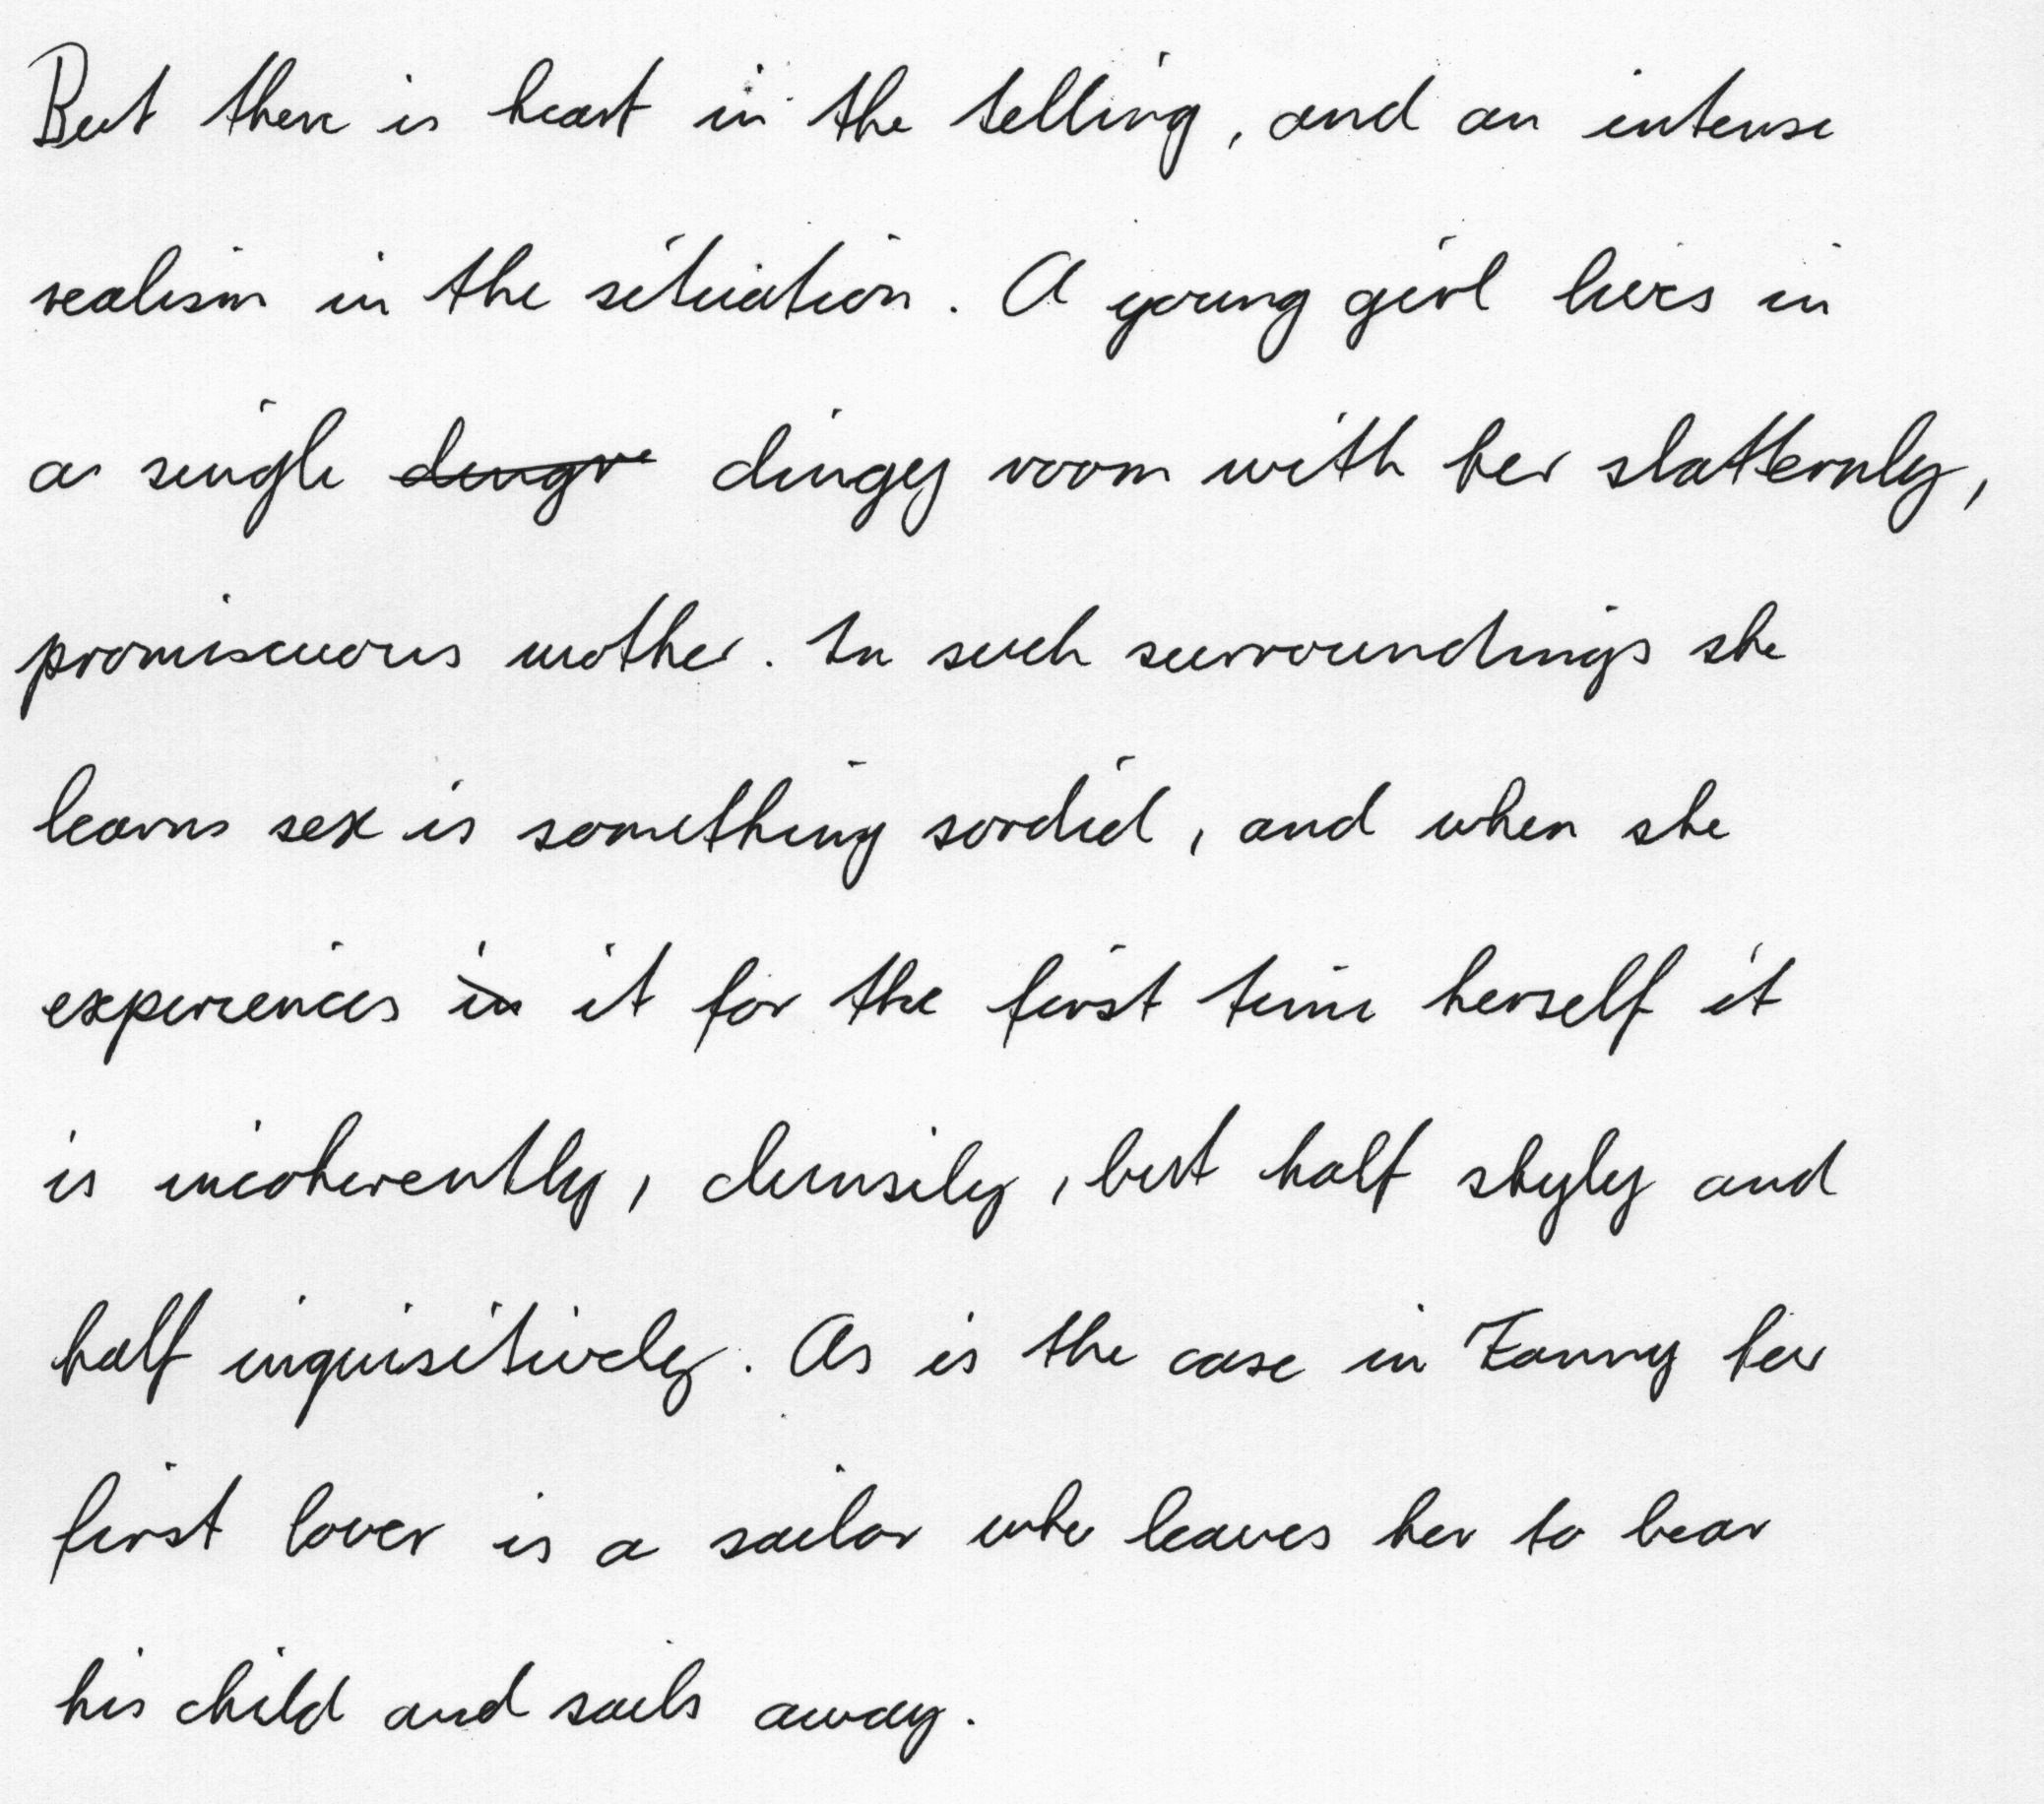 But there is heart in the telling, and an intense
realism in the situation. A young girl lives in
a single dingy room with her slatternly,
promiscuous mother. In such surroundings she
learns sex is something sordid, and when she
experiences in it for the first time herself it
is incoherently, clumsily, but half shyly and
half inquisitively. As is the case in Fanny her
first lover is a sailor who leaves her to bear
his child and sails away.